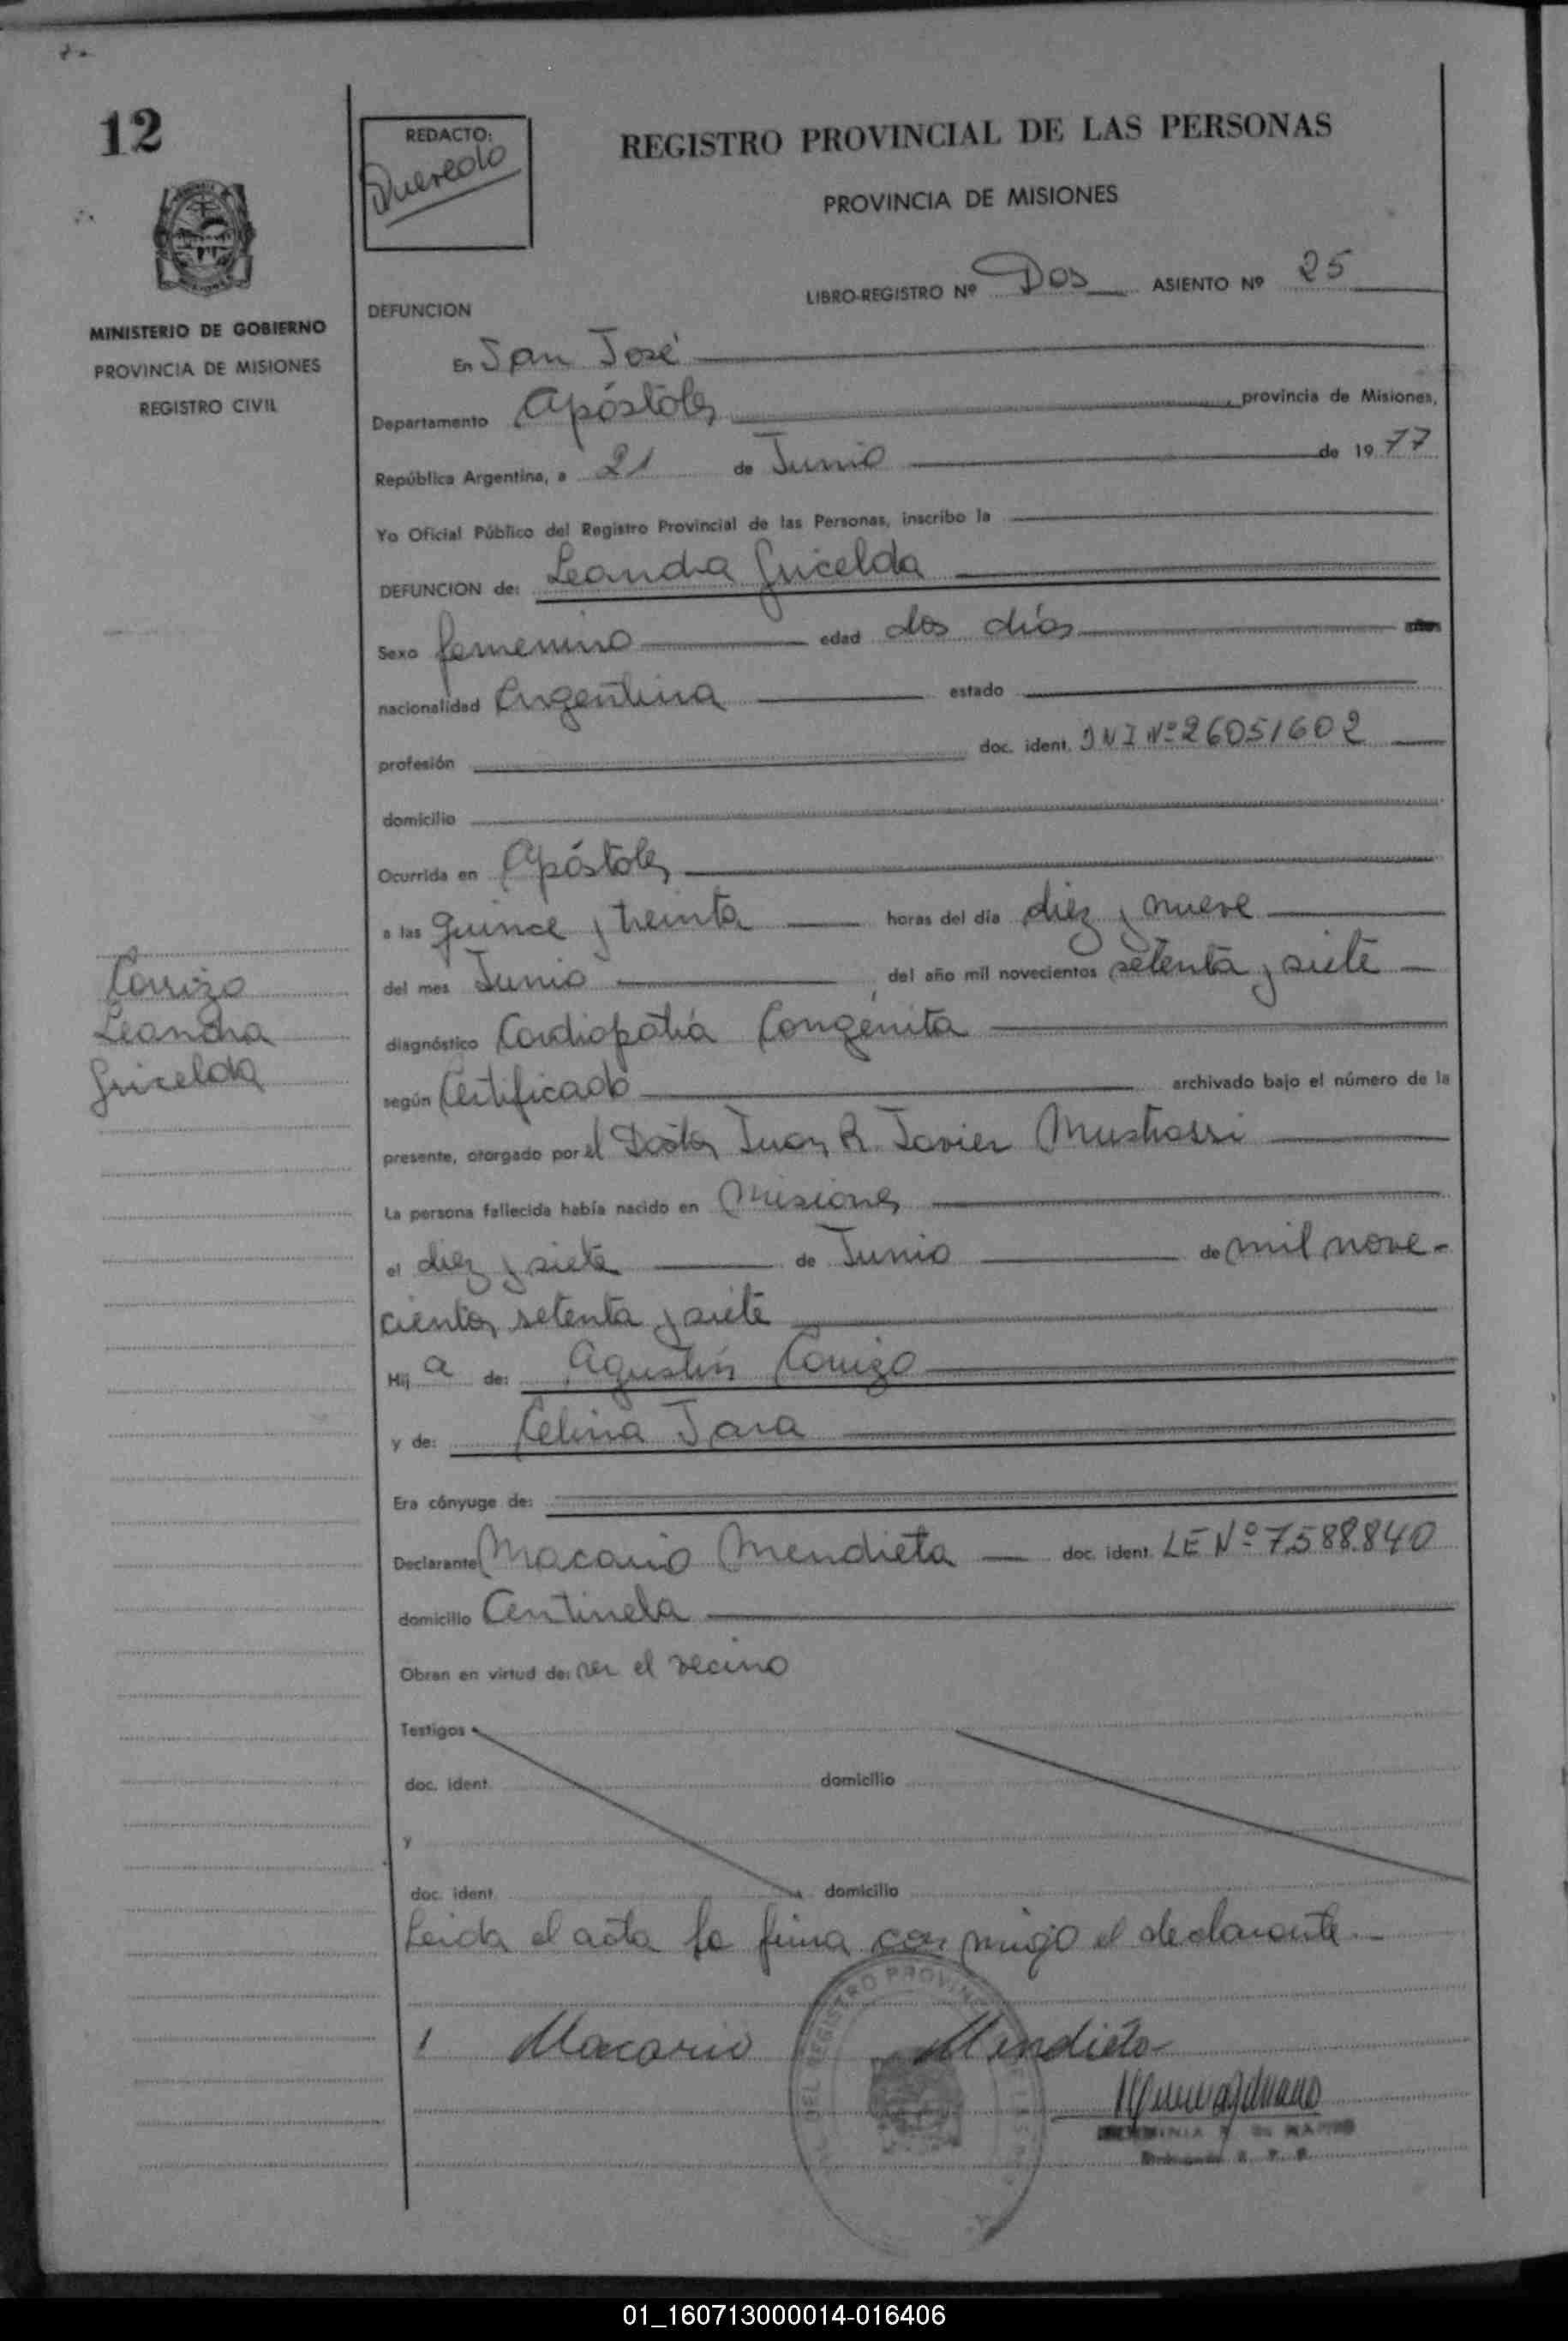 12
REDACTO:
Quevedo
REGISTRO PROVINCIAL DE LAS PERSONAS
PROVINCIA DE MISIONES
LIBRO-REGISTRO Nº Dos ASIENTO Nº 25
MINISTERIO DE GOBIERNO
PROVINCIA DE MISIONES
REGISTRO CIVIL
DEFUNCION
En San José
Departamento Apóstoles, provincia de Misiones,
República Argentina, a 21 de Junio de 1977
Yo Oficial Público del Registro Provincial de las Personas, inscribo la
DEFUNCION de: Leandra Gricelda
Sexo femenino edad dos días
nacionalidad Argentina estado
profesión doc. ident. DNI Nº 26051602
domicilio
Ocurrida en Apóstoles
a las quince y treinta horas del día diez y nueve
del mes Junio, del año mil novecientos setenta y siete
diagnóstico Cardiopatía Congenita
según Certificado archivado bajo el número de la
presente, otorgado por el Doctor Juan R. Javier
La persona fallecida había nacido en Misiones
el diez y siete de Junio de mil nove-
cientos setenta y siete
Hija de: Agustín Carrizo
y de: Celina Jara
Era cónyuge de:
Declarante Macario Mendieta doc. ident. LE Nº 7588.840
domicilio Centinela
Obran en virtud de: ser el vecino
Testigos
doc. ident. domicilio
y
doc. ident. domicilio
Leida el acta la firma con migo el declarante.-
Macario Mendieta
Carrizo
Leandra
Gricelda
DEL REGISTRO PROVINCIAL
01_160713000014-016406